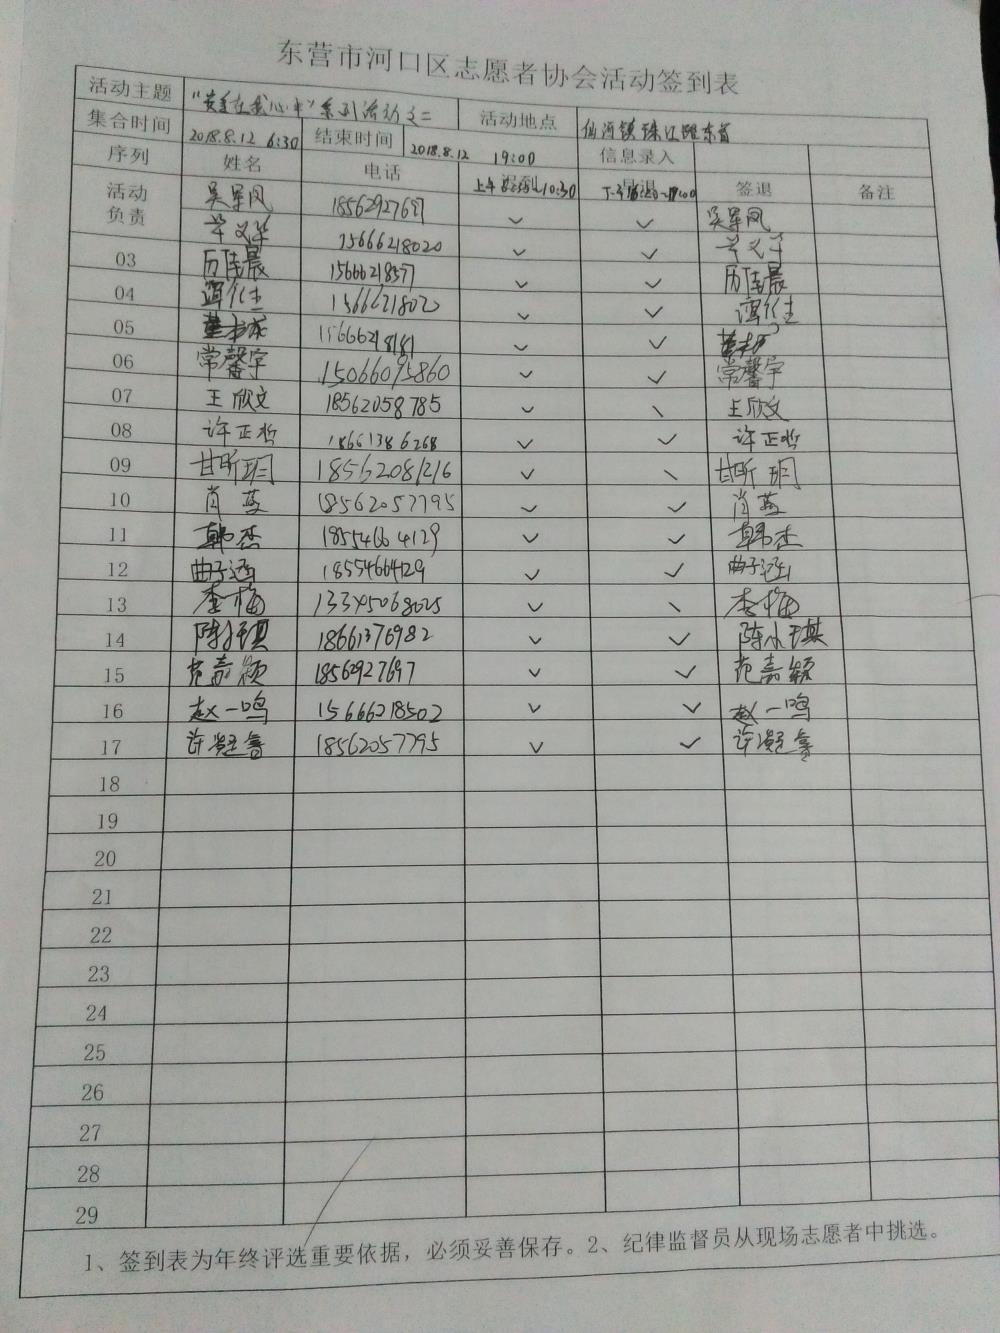 东营市河口区志愿者协会活动签到表
活动主题 系列活动之二 活动地点 仙河镇珠江路东首
集合时间 2018.8.12 6:30 结束时间 2018.8.12 19:00 信息录入
序列 姓名 电话 迟到 早退 签退 备注
活动负责 吴军凤 18562927697 ✓ ✓ 吴军凤
15666218020 ✓ ✓
03 历佳晨 1566621857 ✓ ✓ 历佳晨
04 15666218020 ✓ ✓
05 15666218181 ✓ ✓
06 常馨宇 15066095860 ✓ ✓ 常馨宇
07 王欣文 18562058785 ✓ \ 王欣文
08 许正哲 18661386268 ✓ ✓ 许正哲
09 甘昕玥 18562081216 ✓ \ 甘昕玥
10 肖蓝 18562057795 ✓ ✓ 肖蓝
11 韩杰 18554664129 ✓ ✓ 韩杰
12 曲子涵 1855466429 ✓ ✓ 曲子涵
13 李梅 13345068025 ✓ \ 李梅
14 18661376982 ✓ ✓
15 范嘉颖 18562927697 ✓ ✓ 范嘉颖
16 赵一鸣 15666218502 ✓ ✓ 赵一鸣
17 18562057795 ✓ ✓
18
19
20
21
22
23
24
25
26
27
28
29
1、签到表为年终评选重要依据，必须妥善保存。2、纪律监督员从现场志愿者中挑选。